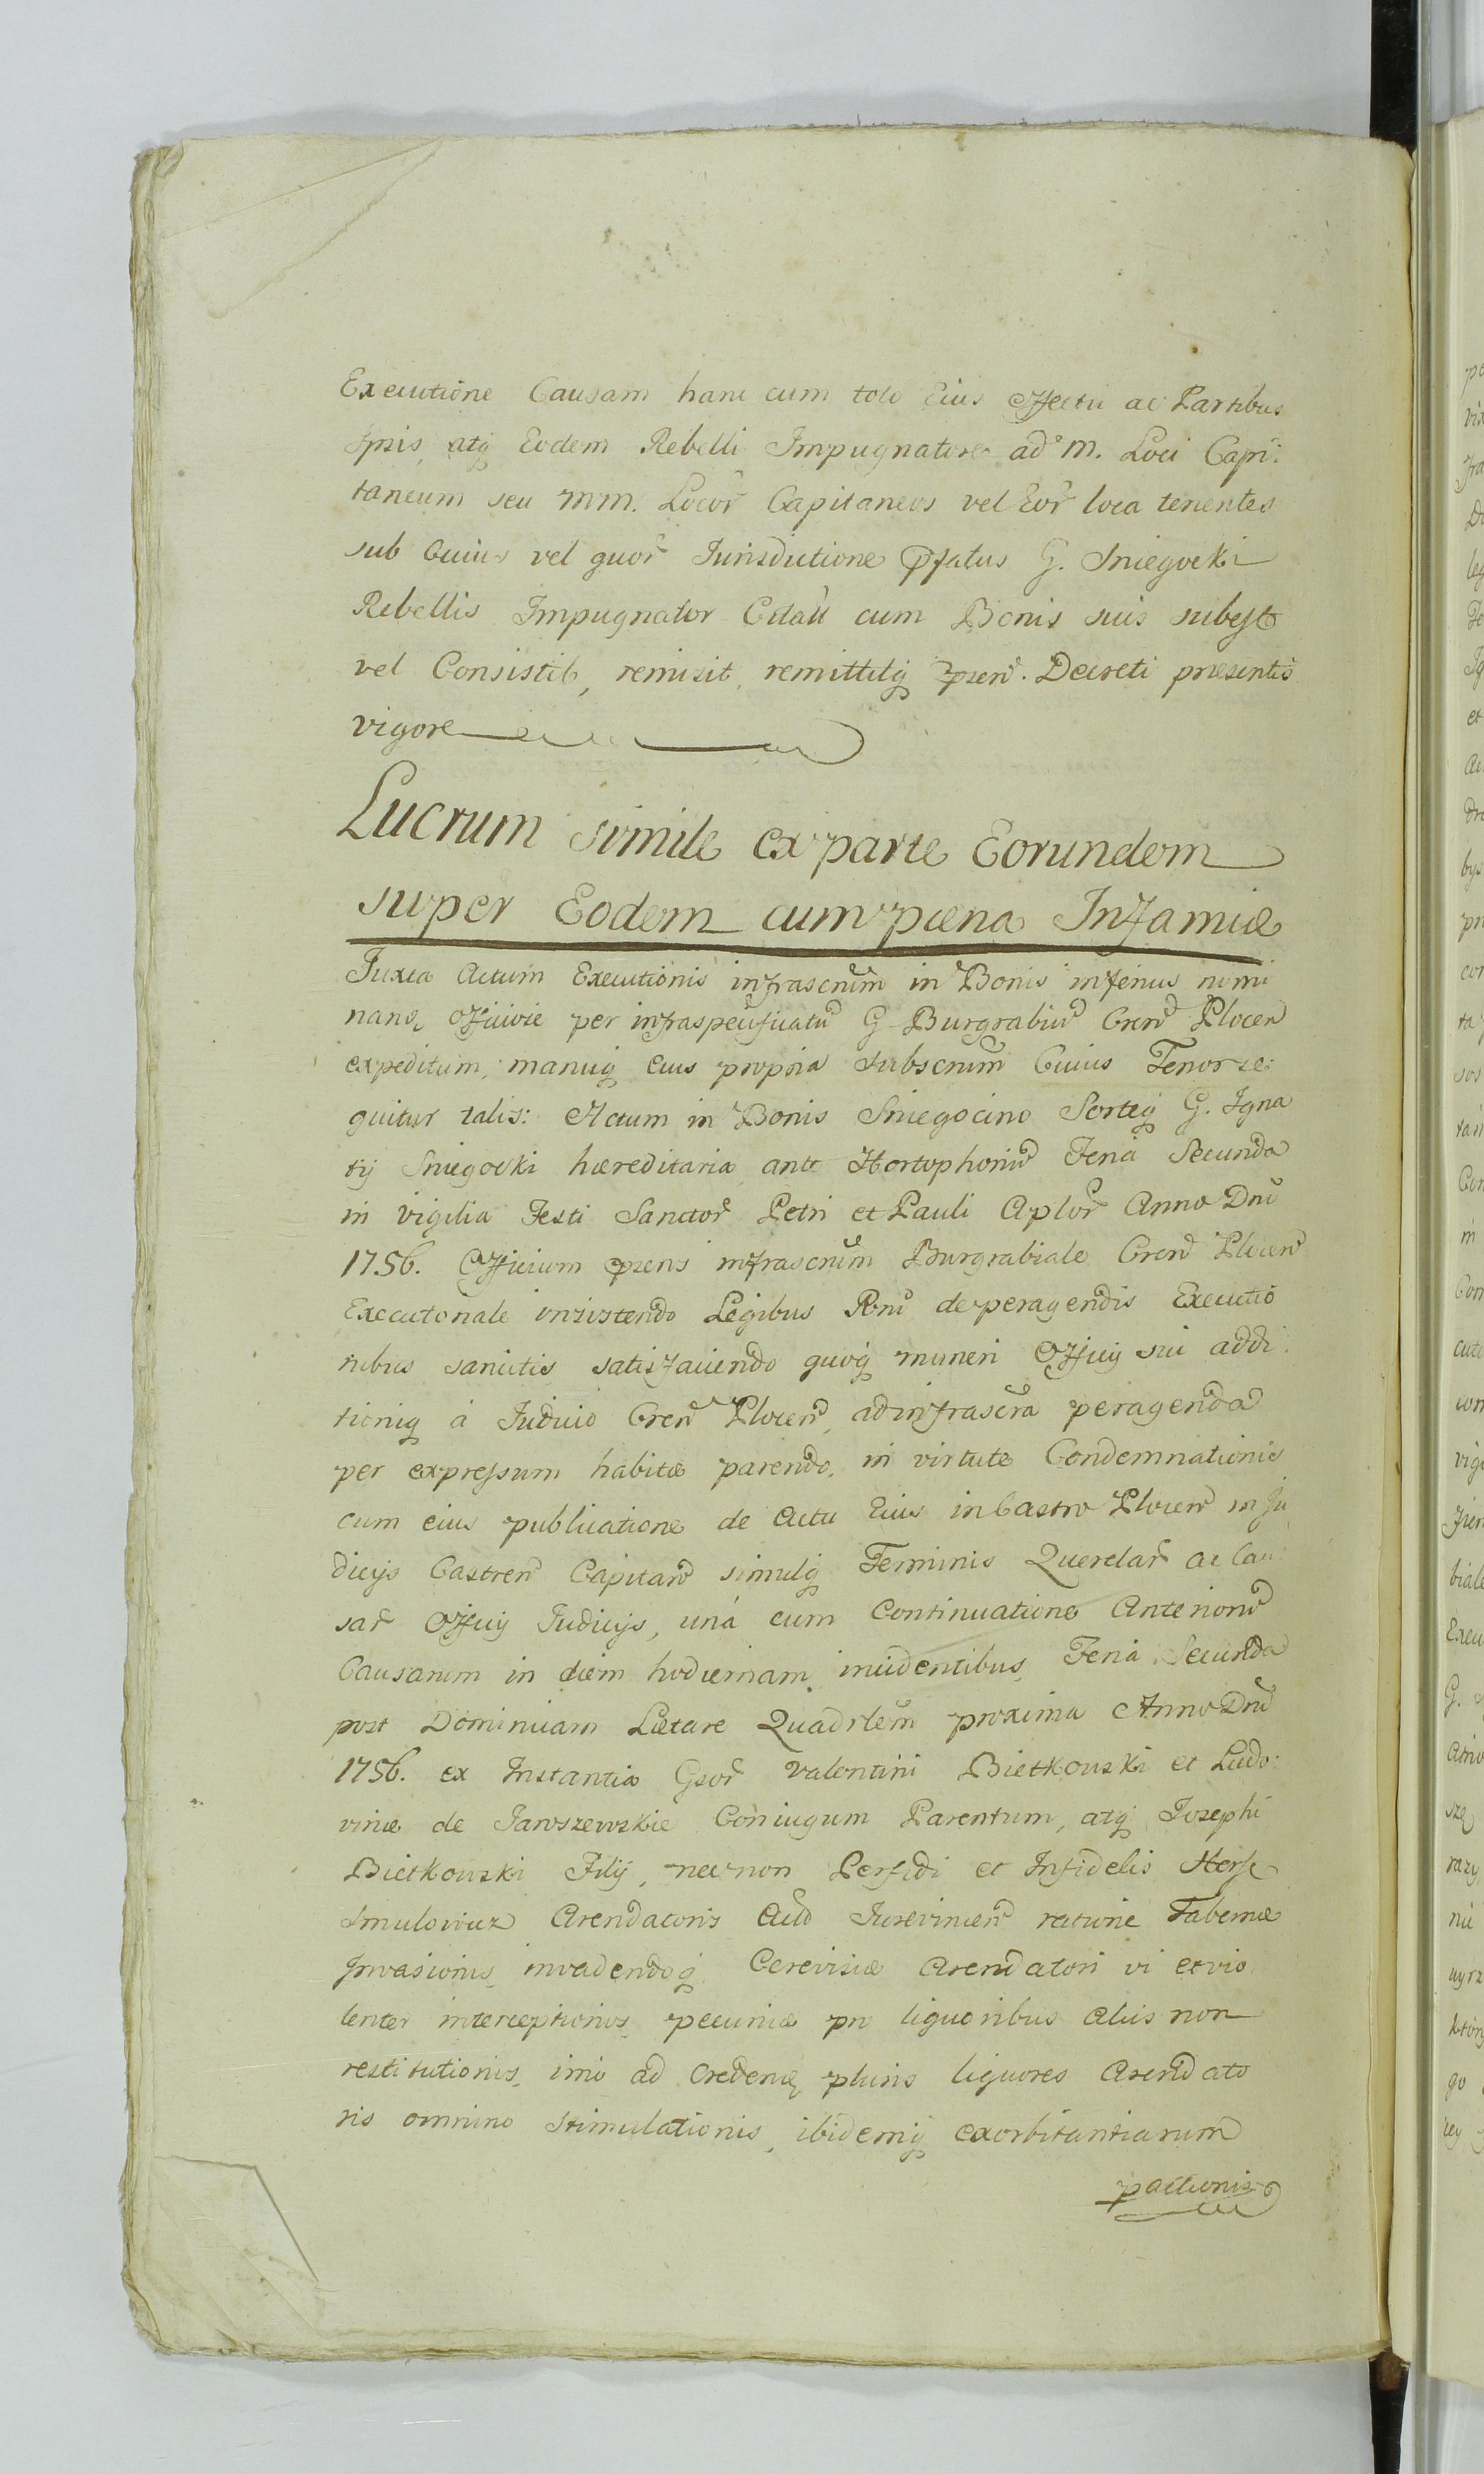 Executione Causam hanc cum toto Eius effectu ac Partibus
Ipsis, atq Eodem Rebelli Impugnatore ad M. Loci Capi:
taneum seu MM. Locor Capitaneos vel Eor loca tenentes
sub Cuius vel quor Iurisdictione Pfatus G. Sniegocki
Rebellis Impugnator Citati cum Bonis suis subest
vel Consistit, remisit, remittitq psen. Decreti præsentis
vigore
Lucrum simile ex parte Eorundem
super Eodem cum pæna Infamiæ
Iuxta Actum Executionis infrascrum in Bonis inferius nomi
nand officiose per infraspecificatu G Burgrabiu Cren Plocen
expeditum, manuq eius propria subscrium Cuius Tenor se:
quitur talis: Actum in Bonis Sniegocino Sorteq G. Igna
tij Sniegocki hæreditaria ante Hortophoriu Feria Secunda
in vigilia Festi Sanctor Petri et Pauli Aplor Anno Dni
1756. Officium psens infrascrium Burgrabiale Cren Plocen
Executoriale insistendo Legibus Rni de peragendis Executio
nibus sancitis satisfaciendo quoq muneri Officij sui addi
tioniq à Iudicio Cren Plocen, ad infrascra peragenda
per expressum habitæ parendo, in virtute Condemnationis
cum eius publicatione de Actu Eius in Castro Plocen in Iu
dicijs Castren Capitan simulq Terminis Querelar ac Cau
sar Officij Iudicijs, unà cum Continuatione Anterioru
Causarum in diem hodiernam incidentibus, Feria Secunda
post Dominicam Lætare Quadrlem proxima Anno Dni
1756. ex Instantia Gsor Valentini Bietkouski et Ludo:
vinæ de Jaroszewskie Coniugum Parentum, atq Iosephi
Bietkouski Filij, necnon Perfidi et Infidelis Hersz
Smulowicz Arendatoris Iurevincen ratione Tabernæ
Invasionis, invadendoq Cerevisiæ Arendatori vi et vio
lenter interceptionis, pecuniæ pro liquoribus Aliis non
restitutionis, imo ad credend pluris liquores Arendato
ris omnino stimulationis, ibidemq exorbitantiarum
pactionis